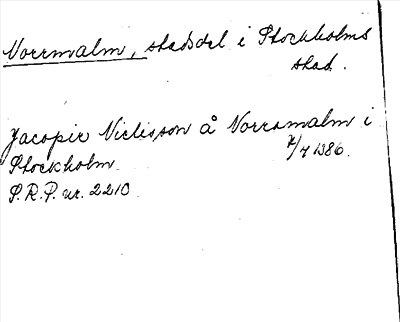 Norrmalm, stadsdel i Stockholms
stad.
Jacopir Niclisson å Norramalm i
Stockholm 7/7 1386.
S.R.P. nr. 2210.